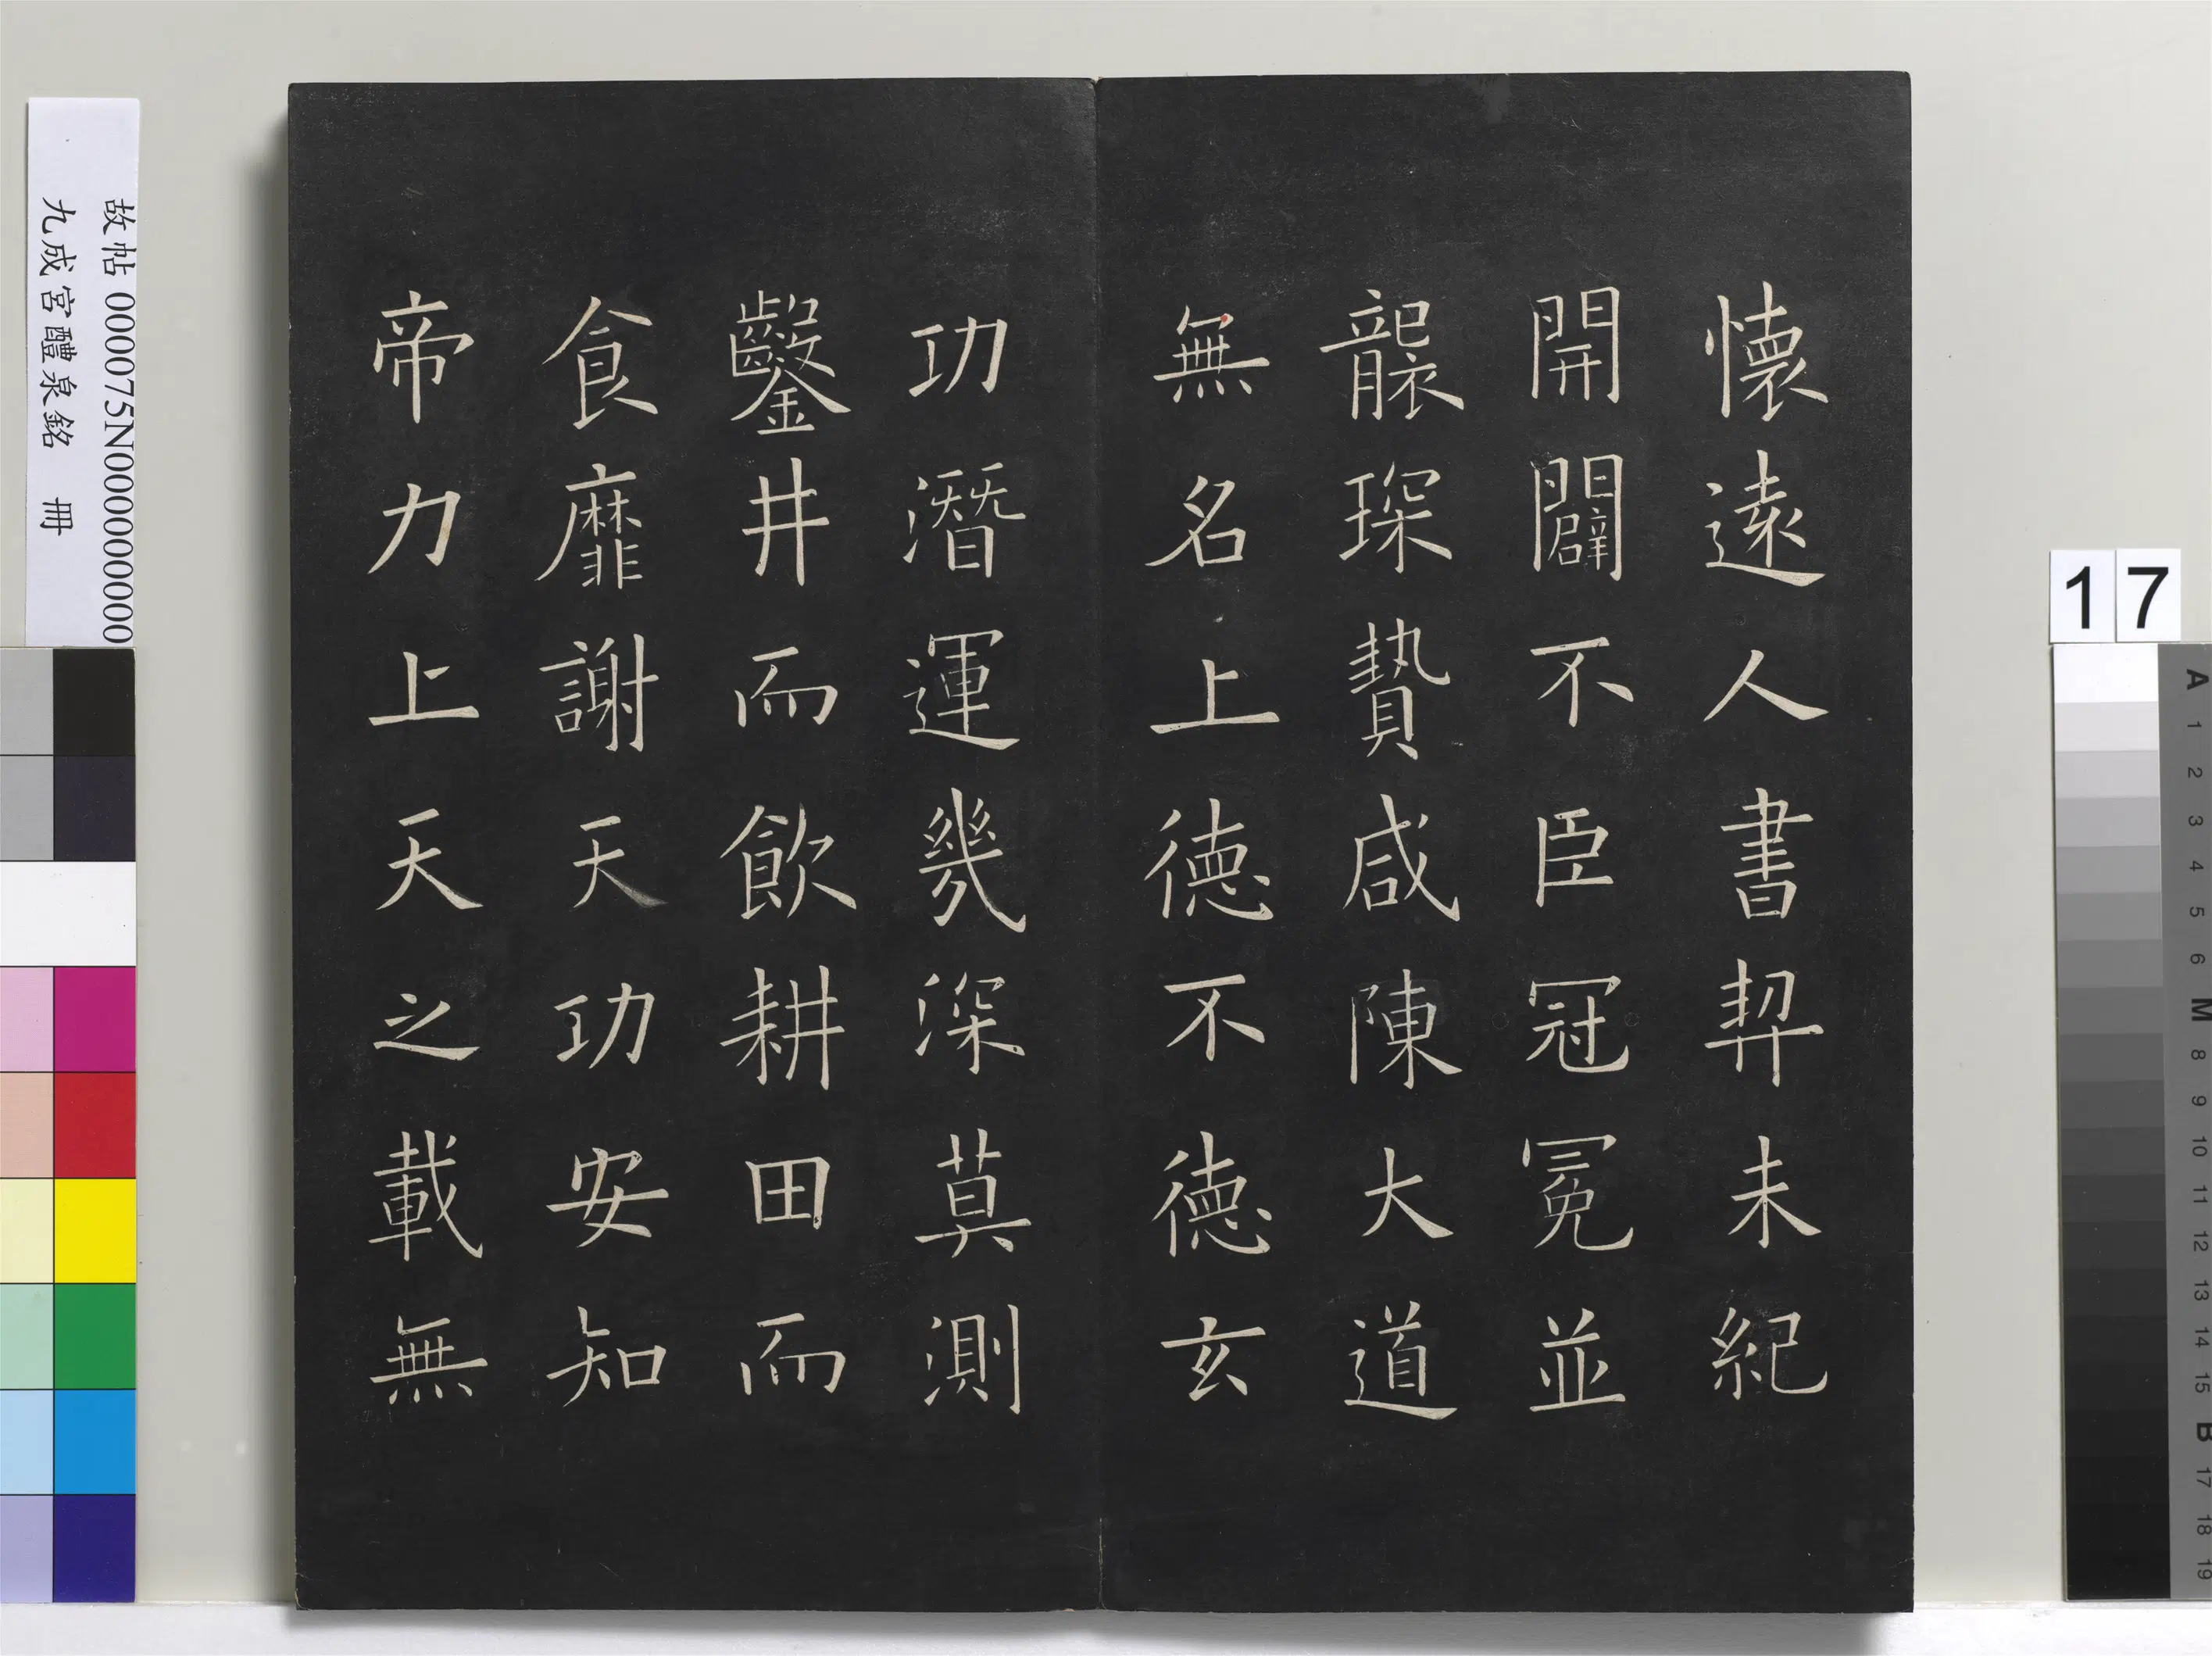 懷遠人書契未紀
開闢不臣冠冕並
襲琛贄咸陳大道
無名上德不德玄
功潛運幾深莫測
鑿井而飲耕田而
食靡謝天功安知
帝力上天之載無
故帖 000075N000000000
九成宮醴泉銘 冊
17
A
1
2
3
4
5
6
M
8
9
10
11
12
13
14
15
B
17
18
19